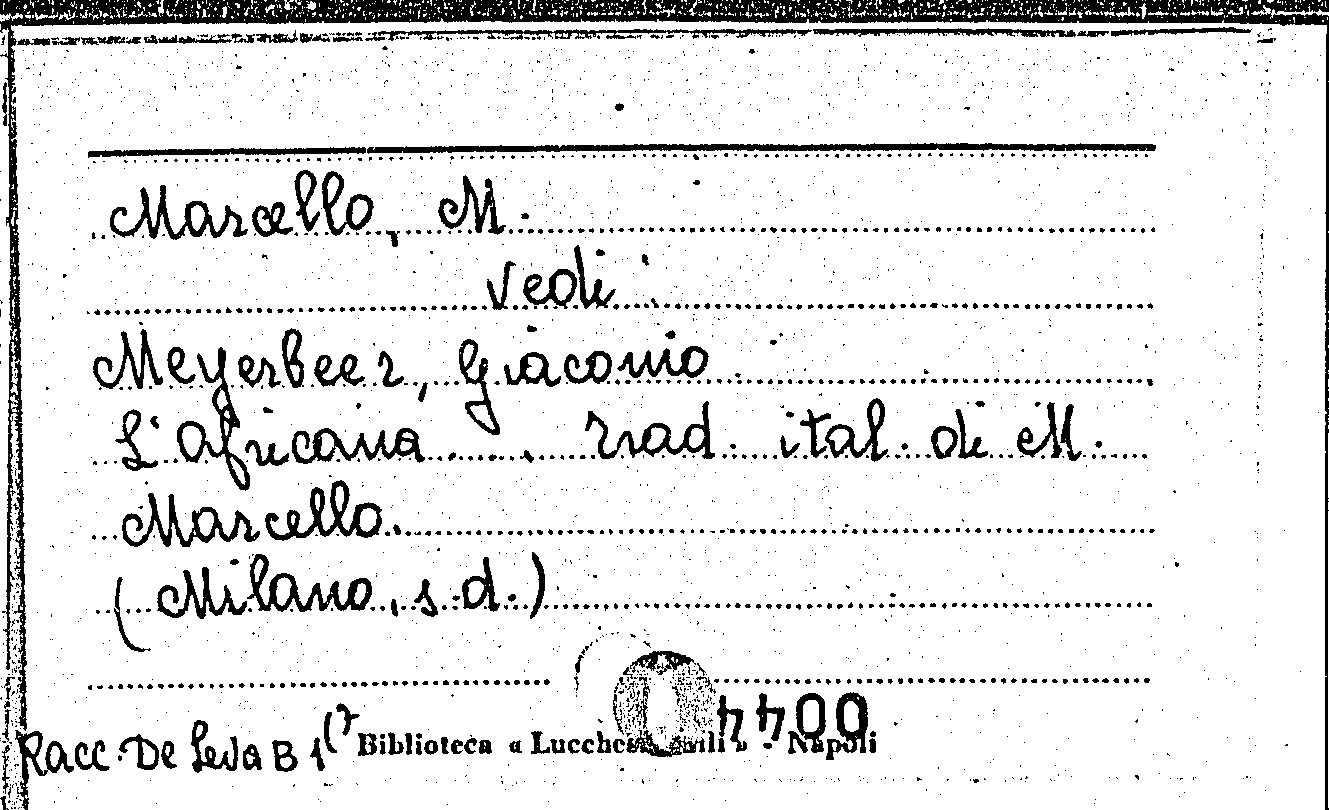 Marcello, M.
vedi:
Meyerbeer, Giacomo
L'africana .... Trad. ital. di M.
Marcello.
(Milano, s.d.)
Racc. De Leva B 1(7
Biblioteca « Lucchesi Palli » - Napoli
0044